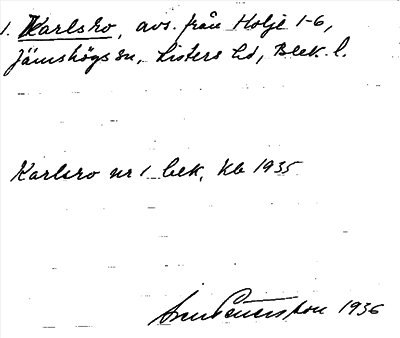 1. Karlsro, avs. från Holje 1-6,
Jämshögs sn, Listers hd, Blek. l.
Karlsro nr 1 bek, Kb 1935
1936